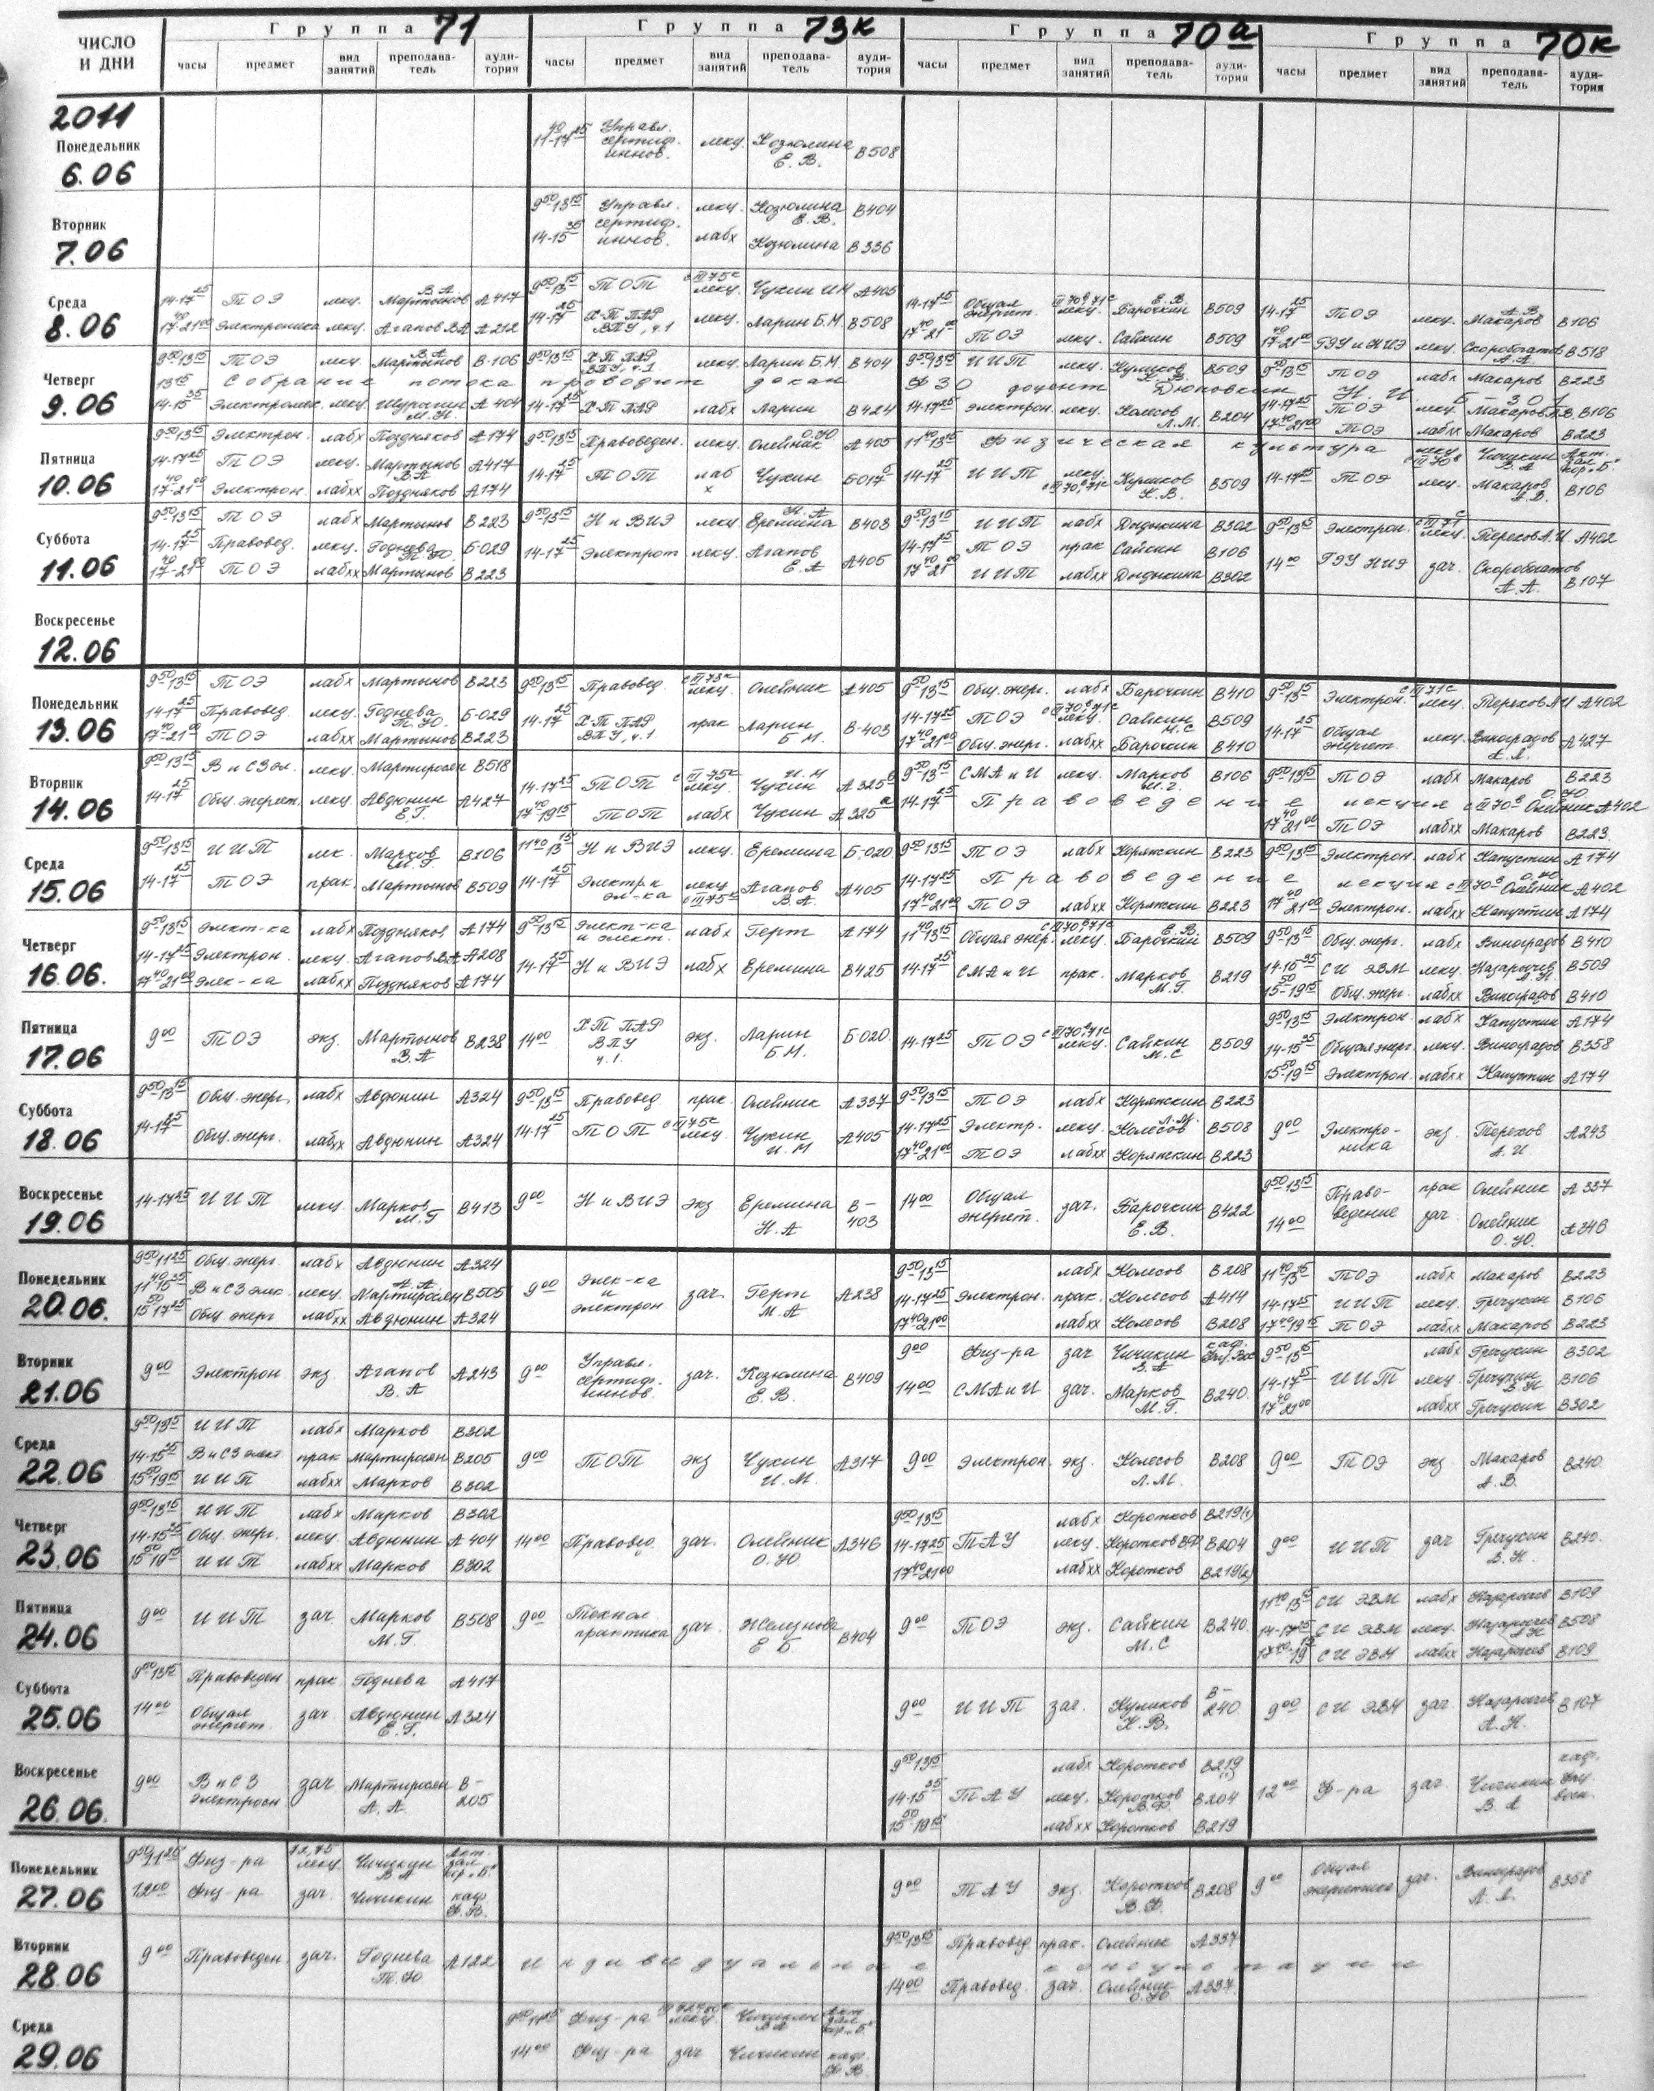 Группа 71 Группа 73к Группа 70а Группа 70к
ЧИСЛО И ДНИ
часы предмет вид занятий преподава-тель ауди-тория часы предмет вид занятий преподава-тель ауди-тория часы предмет вид занятий преподава-тель ауди-тория часы предмет вид занятий преподава-тель ауди-тория
2011
Понедельник
6.06
11 40-17 25 Управл. сертиф. иннов. лекц. Козюлина Е.В. В508
Вторник
7.06
9 50-13 15 Управл. сертиф. иннов. лекц. Козюлина Е.В. В404
14-15 35 лабх Козюлина В336
Среда
8.06
14-17 25 ТОЭ лекц. Мартынов В.А. А417
17 40-21 00 Электроника лекц. Агапов В.А А212
9 50-13 15 ТОТ с III 75с лекц. Чухин И.М А405
14-17 25 ХТ ПАР ВПУ, ч.1 лекц. Ларин Б.М. В508
14-17 25 Общая энергет. лекц. Барочкин Е.В. В509
17 40-21 00 ТОЭ лекц. Сайкин В509
14-17 25 ТОЭ лекц. Макаров А.В. В106
17 40-21 00 ГЭУ и НИЭ лекц. Скоробогатов А.А В518
Четверг
9.06
9 50-13 15 ТОЭ лекц. Мартынов В.А В-106 9 50-13 15 ХТ ПАР ВПУ, ч.1 лекц. Ларин Б.М. В404 9 50-13 15 ИИТ лекц. Куликов К.В. В509 9 50-13 15 ТОЭ лабх Макаров В223
13 15 Собрание потока проводит декан ФЗО доцент Дюповкин Н.И. Б-301
14-15 35 Электромех. лекц. А404 14-17 25 ХТ ПАР лабх Ларин В424 14-17 25 электрон. лекц. Колесов Л.М. В204 14-17 25 ТОЭ лекц. Макаров А.В. В106
17 40-21 00 ТОЭ лабхх Макаров В223
Пятница
10.06
9 50-13 15 Электрон. лабх Поздняков А174
14-17 25 ТОЭ лекц. Мартынов В.А А417
17 40-21 00 Электрон. лабхх Поздняков А174
9 50-13 15 Правоведен. лекц. Олейник О.Ю А405
14-17 25 ТОТ лаб х Чухин Б017
11 40-13 15 Физическая культура лекц. Чичикин В.А Акт. зал кор. "Б"
14-17 25 ИИТ лекц. Куликов К.В. В509
14-17 25 ТОЭ лекц. Макаров А.В. В106
Суббота
11.06
9 50-13 15 ТОЭ лабх Мартынов В223
14-17 25 Правовед. лекц. Годнева Т.Ю Б-029
17 40-21 00 ТОЭ лабхх Мартынов В223
9 50-13 15 Н и ВИЭ лекц Еремина Н.А В403
14-17 25 Электрот лекц. Агапов А405
9 50-13 15 ИИТ лабх Дидыкина В302
14-17 25 ТОЭ прак Сайкин В106
17 40-21 00 ИИТ лабхх Дидыкина В302
9 50-13 15 Электрон. с III 71с лекц. Терехов А.И А402
14 00 ГЭУ НИЭ зач. Скоробогатов А.А. В107
Воскресенье
12.06
Понедельник
13.06
9 50-13 15 ТОЭ лабх Мартынов В223
14-17 25 Правовед. лекц. Годнева Т.Ю. Б-029
17 40-21 00 ТОЭ лабхх Мартынов В223
9 50-13 15 Правовед. лекц. Олейник А405
14-17 25 ХТ ПАР ВПУ, ч.1 прак Ларин Б.М. В-403
9 50-13 15 Общ. энерг. лабх Барочкин В410
14-17 25 ТОЭ лекц. Сайкин М.С В509
17 40-21 00 Общ. энерг. лабхх Барочкин В410
9 50-13 15 Электрон. с III 71с лекц. Терехов А.И А402
14-17 25 Общая энергет. лекц. Виноградов А.Л. А427
Вторник
14.06
9 50-13 15 В и СЭ эл. лекц. Мартиросян В518
14-17 25 Общ. энергет. лекц. Авдюнин Е.Г. А427
14-17 25 ТОТ с III 75с лекц. Чухин И.М А325
17 40-19 15 ТОТ лабх Чухин А325
9 50-13 15 СМА и И лекц. Марков М.Г. В106
14-17 25 Правоведение лекция с III 70 Олейник О.Ю. А402
9 50-13 15 ТОЭ лабх Макаров В223
17 40-21 00 ТОЭ лабхх Макаров В223
Среда
15.06
9 50-13 15 ИИТ лек. Марков М.Г В106
14-17 25 ТОЭ прак. Мартынов В509
11 40-13 15 Н и ВИЭ лекц. Еремина Б-020
14-17 25 Электр.к эл-ка лекц с III 75с Агапов В.А. А405
9 50-13 15 ТОЭ лабх Коряжкин В223
14-17 25 Правоведение лекция с III 70 Олейник О.Ю. А402
17 40-21 00 ТОЭ лабхх Коряжкин В223
9 50-13 15 Электрон. лабх Капустин А174
17 40-21 00 Электрон. лабхх Капустин А174
Четверг
16.06.
9 50-13 15 Элект-ка лабх Поздняков А174
14-17 25 Электрон. лекц. Агапов В.А А208
17 40-21 00 Элек-ка лабхх Поздняков А174
9 50-13 15 Элект-ка и элект. лабх Герт А174
14-17 25 Н и ВИЭ лабх Еремина В425
11 40-13 15 Общая энер. лекц. Барочкин Е.В. В509
14-17 25 СМА и И прак. Марков М.Г. В219
9 50-13 15 Общ. энерг. лабх Виноградов В410
14-15 35 СИ ЭВМ лекц. Назарычев А.Н В509
15 50-19 15 Общ. энерг. лабхх Виноградов В410
Пятница
17.06
9 00 ТОЭ экз. Мартынов В.А В238 14 00 ХТ ПАР ВПУ ч.1. экз. Ларин Б.М. Б020 14-17 25 ТОЭ лекц. Сайкин М.С В509
9 50-13 15 Электрон. лабх Капустин А174
14-15 35 Общая энерг. лекц. Виноградов В358
15 50-19 15 Электрон. лабхх Капустин А174
Суббота
18.06
9 50-13 15 Общ. энерг. лабх Авдюнин А324
14-17 25 Общ. энерг. лабхх Авдюнин А324
9 50-13 15 Правовед прак. Олейник А337
14-17 25 ТОТ с III 75с лекц. Чухин И.М А405
9 50-13 15 ТОЭ лабх Коряжкин В223
14-17 25 Электр. лекц. Колесов Л.М. В508
17 40-21 00 ТОЭ лабхх Коряжкин В223
9 00 Электро-ника экз. Терехов А.И А243
Воскресенье
19.06
14-17 25 ИИТ лекц. Марков М.Г В413 9 00 Н и ВИЭ экз Еремина Н.А В-403 14 00 Общая энергет. зач. Барочкин Е.В. В422
9 50-13 15 Право-ведение прак Олейник А337
14 00 зач. Олейник О.Ю. А346
Понедельник
20.06.
9 50-11 25 Общ. энерг. лабх Авдюнин А324
11 40-15 35 В и СЭ элек. лекц. Мартиросян А.А. В505
15 50-17 25 Общ энерг лабхх Авдюнин А324
9 00 Элек-ка и электрон зач. Герт М.А А238
9 50-13 15 лабх Колесов В208
14-17 25 Электрон. прак. Колесов А414
17 40-21 00 лабхх Колесов В208
11 40-13 15 ТОЭ лабх Макаров В223
14-17 25 ИИТ лекц. Гречухин В106
17 40-19 15 ТОЭ лабхх Макаров В223
Вторник
21.06
9 00 Электрон экз. Агапов В.А А243 9 00 Управл. сертиф. иннов. зач. Козюлина Е.В. В409
9 00 Физ-ра зач Чичикин В.А каф. Физ. Вос
14 00 СМА и И зач. Марков М.Г. В240.
9 50-13 15 лабх Гречухин В302
14-17 25 ИИТ лекц. Гречухин В.Н В106
17 40-21 00 лабхх Гречухин В302
Среда
22.06
9 50-13 15 ИИТ лабх Марков В302
14-15 35 В и СЭ элект прак Мартиросян В205
15 50-19 15 ИИТ лабхх Марков В302
9 00 ТОТ экз Чухин И.М. А317 9 00 Электрон. экз. Колесов Л.М. В208 9 00 ТОЭ экз Макаров А.В. В240
Четверг
23.06
9 50-13 15 ИИТ лабх Марков В302
14-15 35 Общ. энерг. лекц. Авдюнин А404
15 50-19 15 ИИТ лабхх Марков В302
14 00 Правовед. зач. Олейник О.Ю. А346
9 50-13 15 лабх Коротков В219(1)
14-17 25 ТАУ лекц. Коротков В.Ф. В204
17 40-21 00 лабхх Коротков В219(2)
9 00 ИИТ зач Гречухин В.Н. В240.
Пятница
24.06
9 00 ИИТ зач Марков М.Г. В508 9 00 Технол практика зач. Желнунова Е Б В404 9 00 ТОЭ экз. Сайкин М.С В240.
11 40-13 15 СИ ЭВМ лабх Назарычев В109
14-17 25 СИ ЭВМ лекц. Назарычев А.Н В508
17 40-19 15 СИ ЭВМ лабхх Назарычев В109
Суббота
25.06
9 50-13 15 Правоведен прак. Годнева А417
14 00 Общая энергет. зач. Авдюнин Е.Г. А324
9 00 ИИТ зач. Куликов К.В. В-240 9 00 СИ ЭВМ зач. Назарычев А.Н. В107
Воскресенье
26.06.
9 00 В и СЭ электроэн зач Мартиросян А.А. В-205
9 50-13 15 лабх Коротков В219 (1)
14-15 35 ТАУ лекц. Коротков В.Ф. В204
15 50-19 15 лабхх Коротков В219
12 00 Ф-ра зач. Чичикин В.А каф. физ. восп.
Понедельник
27.06
9 50-11 25 Физ-ра лекц Чичикин В А Акт. зал кор. "Б"
12 00 Физ-ра зач. Чичикин каф Ф.В.
9 00 ТАУ экз. Коротков В.Ф. В208 9 00 Общая энергетика зач. Виноградов А.Л. В358
Вторник
28.06
9 00 Правоведен. зач. Годнева Т.Ю А122
индивидуальные консультации
9 50-13 15 Правовед прак. Олейник А337
14 00 Правовед. зач. Олейник О.Ю А337
Среда
29.06
9 50-11 25 Физ-ра лекц Чичикин В А Акт зал кор. "Б"
14 00 Физ-ра зач Чичикин каф. Ф.В